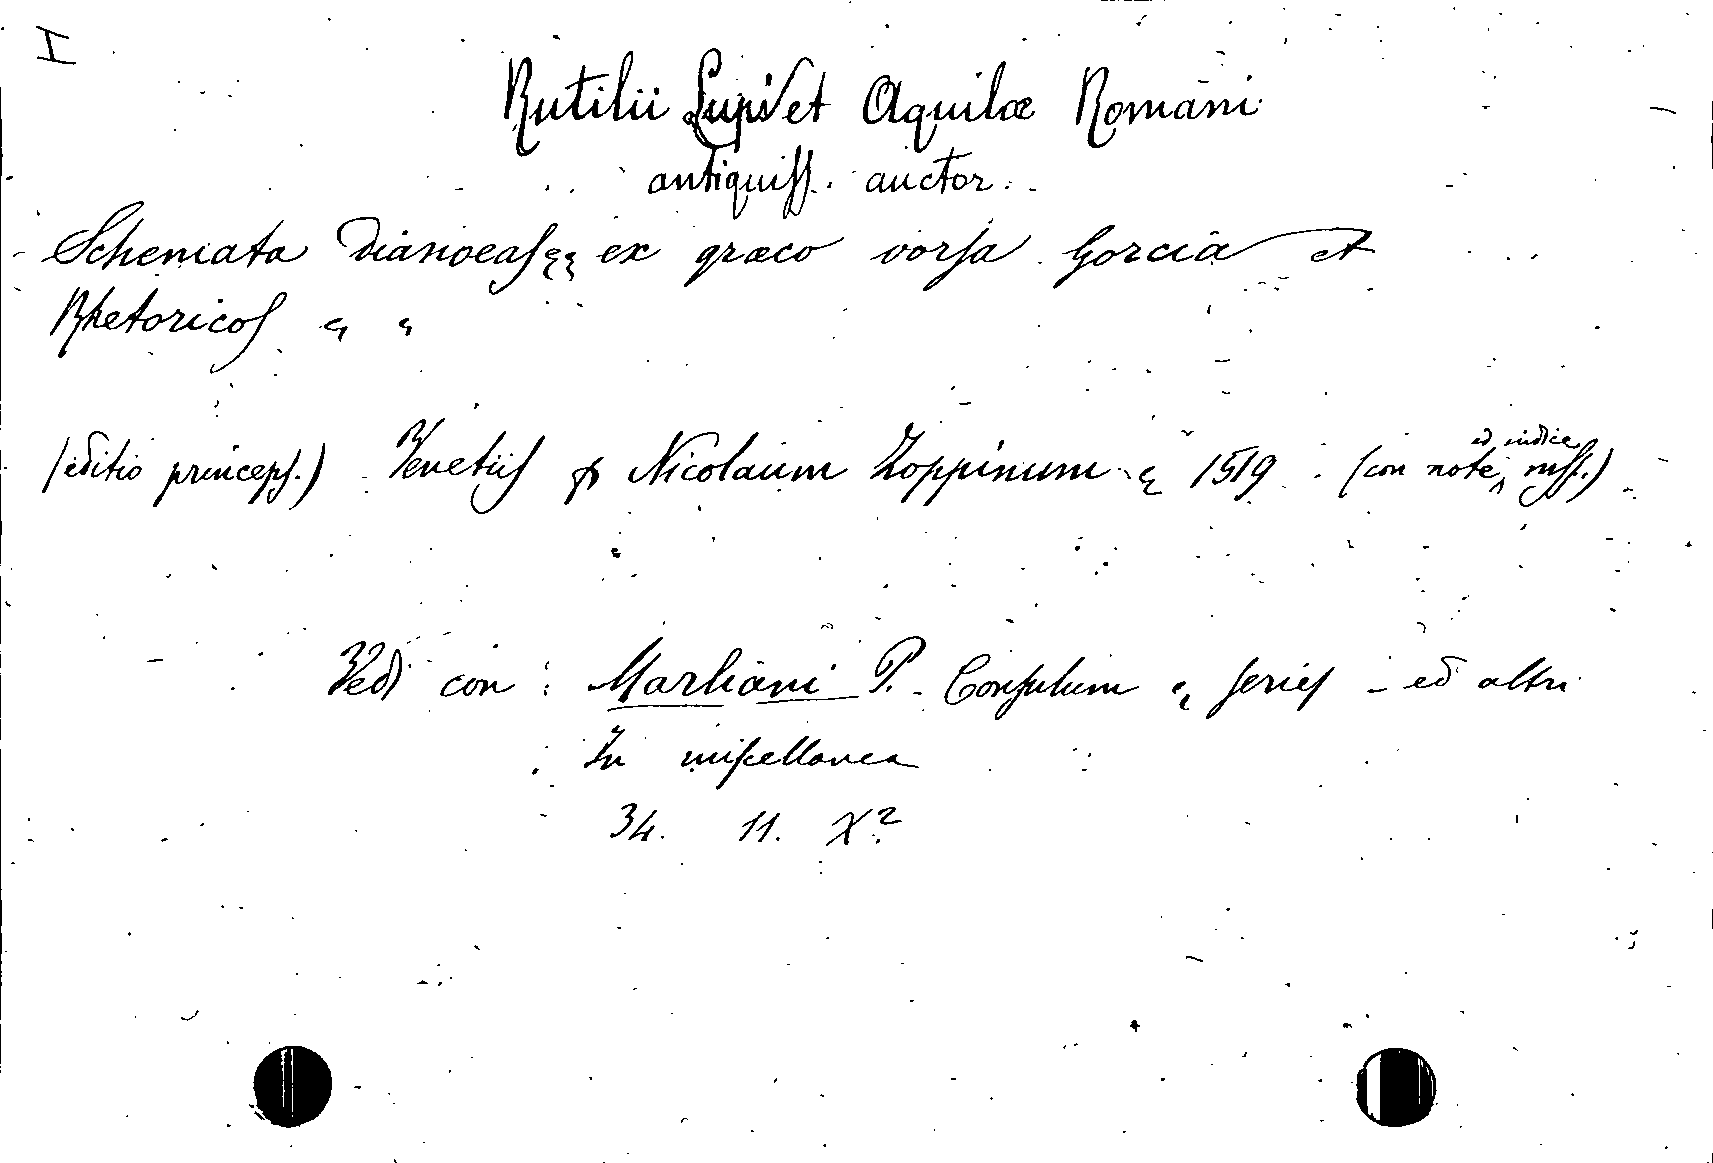 I
Rutilii Lupi et Aquilæ Romani
antiquiss. auctor.
Schemata Dianoeas „ ex græco vorsa Gorcia et
Rhetoricos „ „
(editio princeps.) Venetiis p Nicolaum Zoppinum „ 1519 (con note ed indice mss.)
Vedi con : Marliani P. Consulum „ series - ed altri
In miscellanea
34. 11. X²